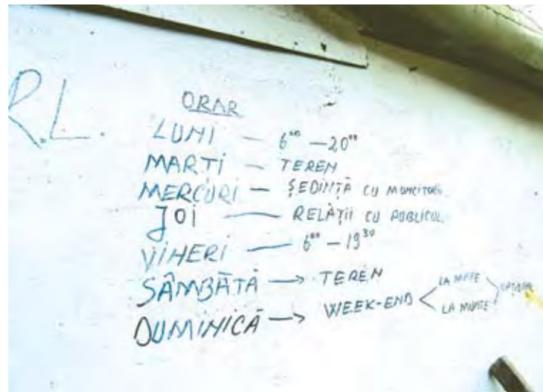 R.L.
ORAR
LUNI — 6⁰⁰ — 20⁰⁰
MARTI — TEREN
MERCURI — ȘEDINȚĂ CU MUNCITORII
JOI — RELAȚII CU PUBLICUL
VINERI — 6⁰⁰ — 19³⁰
SÂMBĂTĂ → TEREN
DUMINICĂ → WEEK-END < LA MUNTE